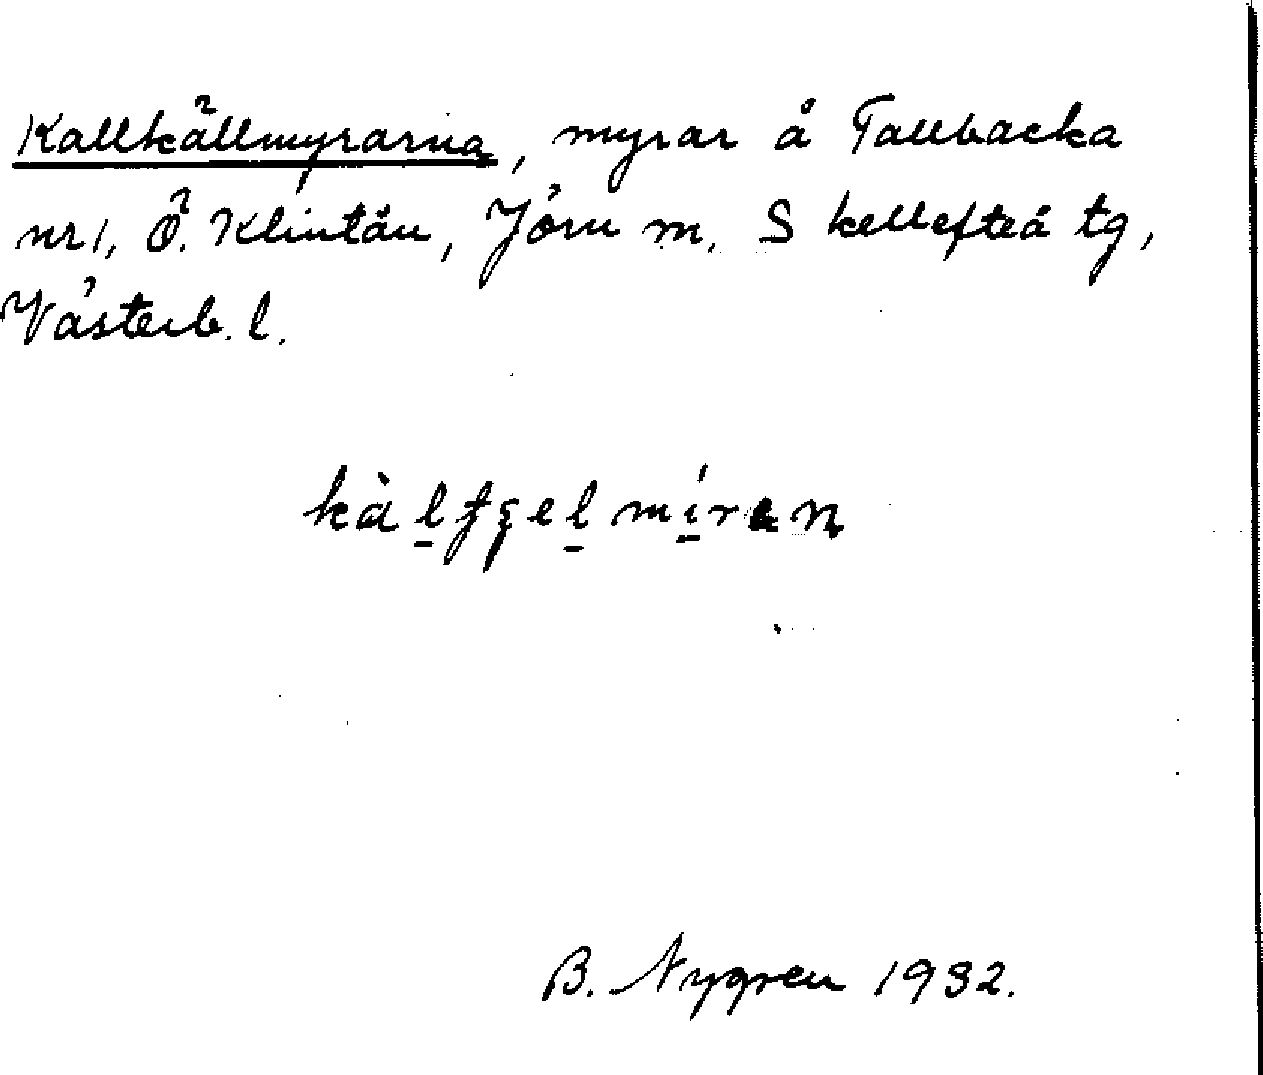 Kallkällmyrarna, myrar å Tallbacka
nr 1, Ö. Klintån, Jörn sn. Skellefteå tg,
Västerb. l.
B. Nygren 1932.